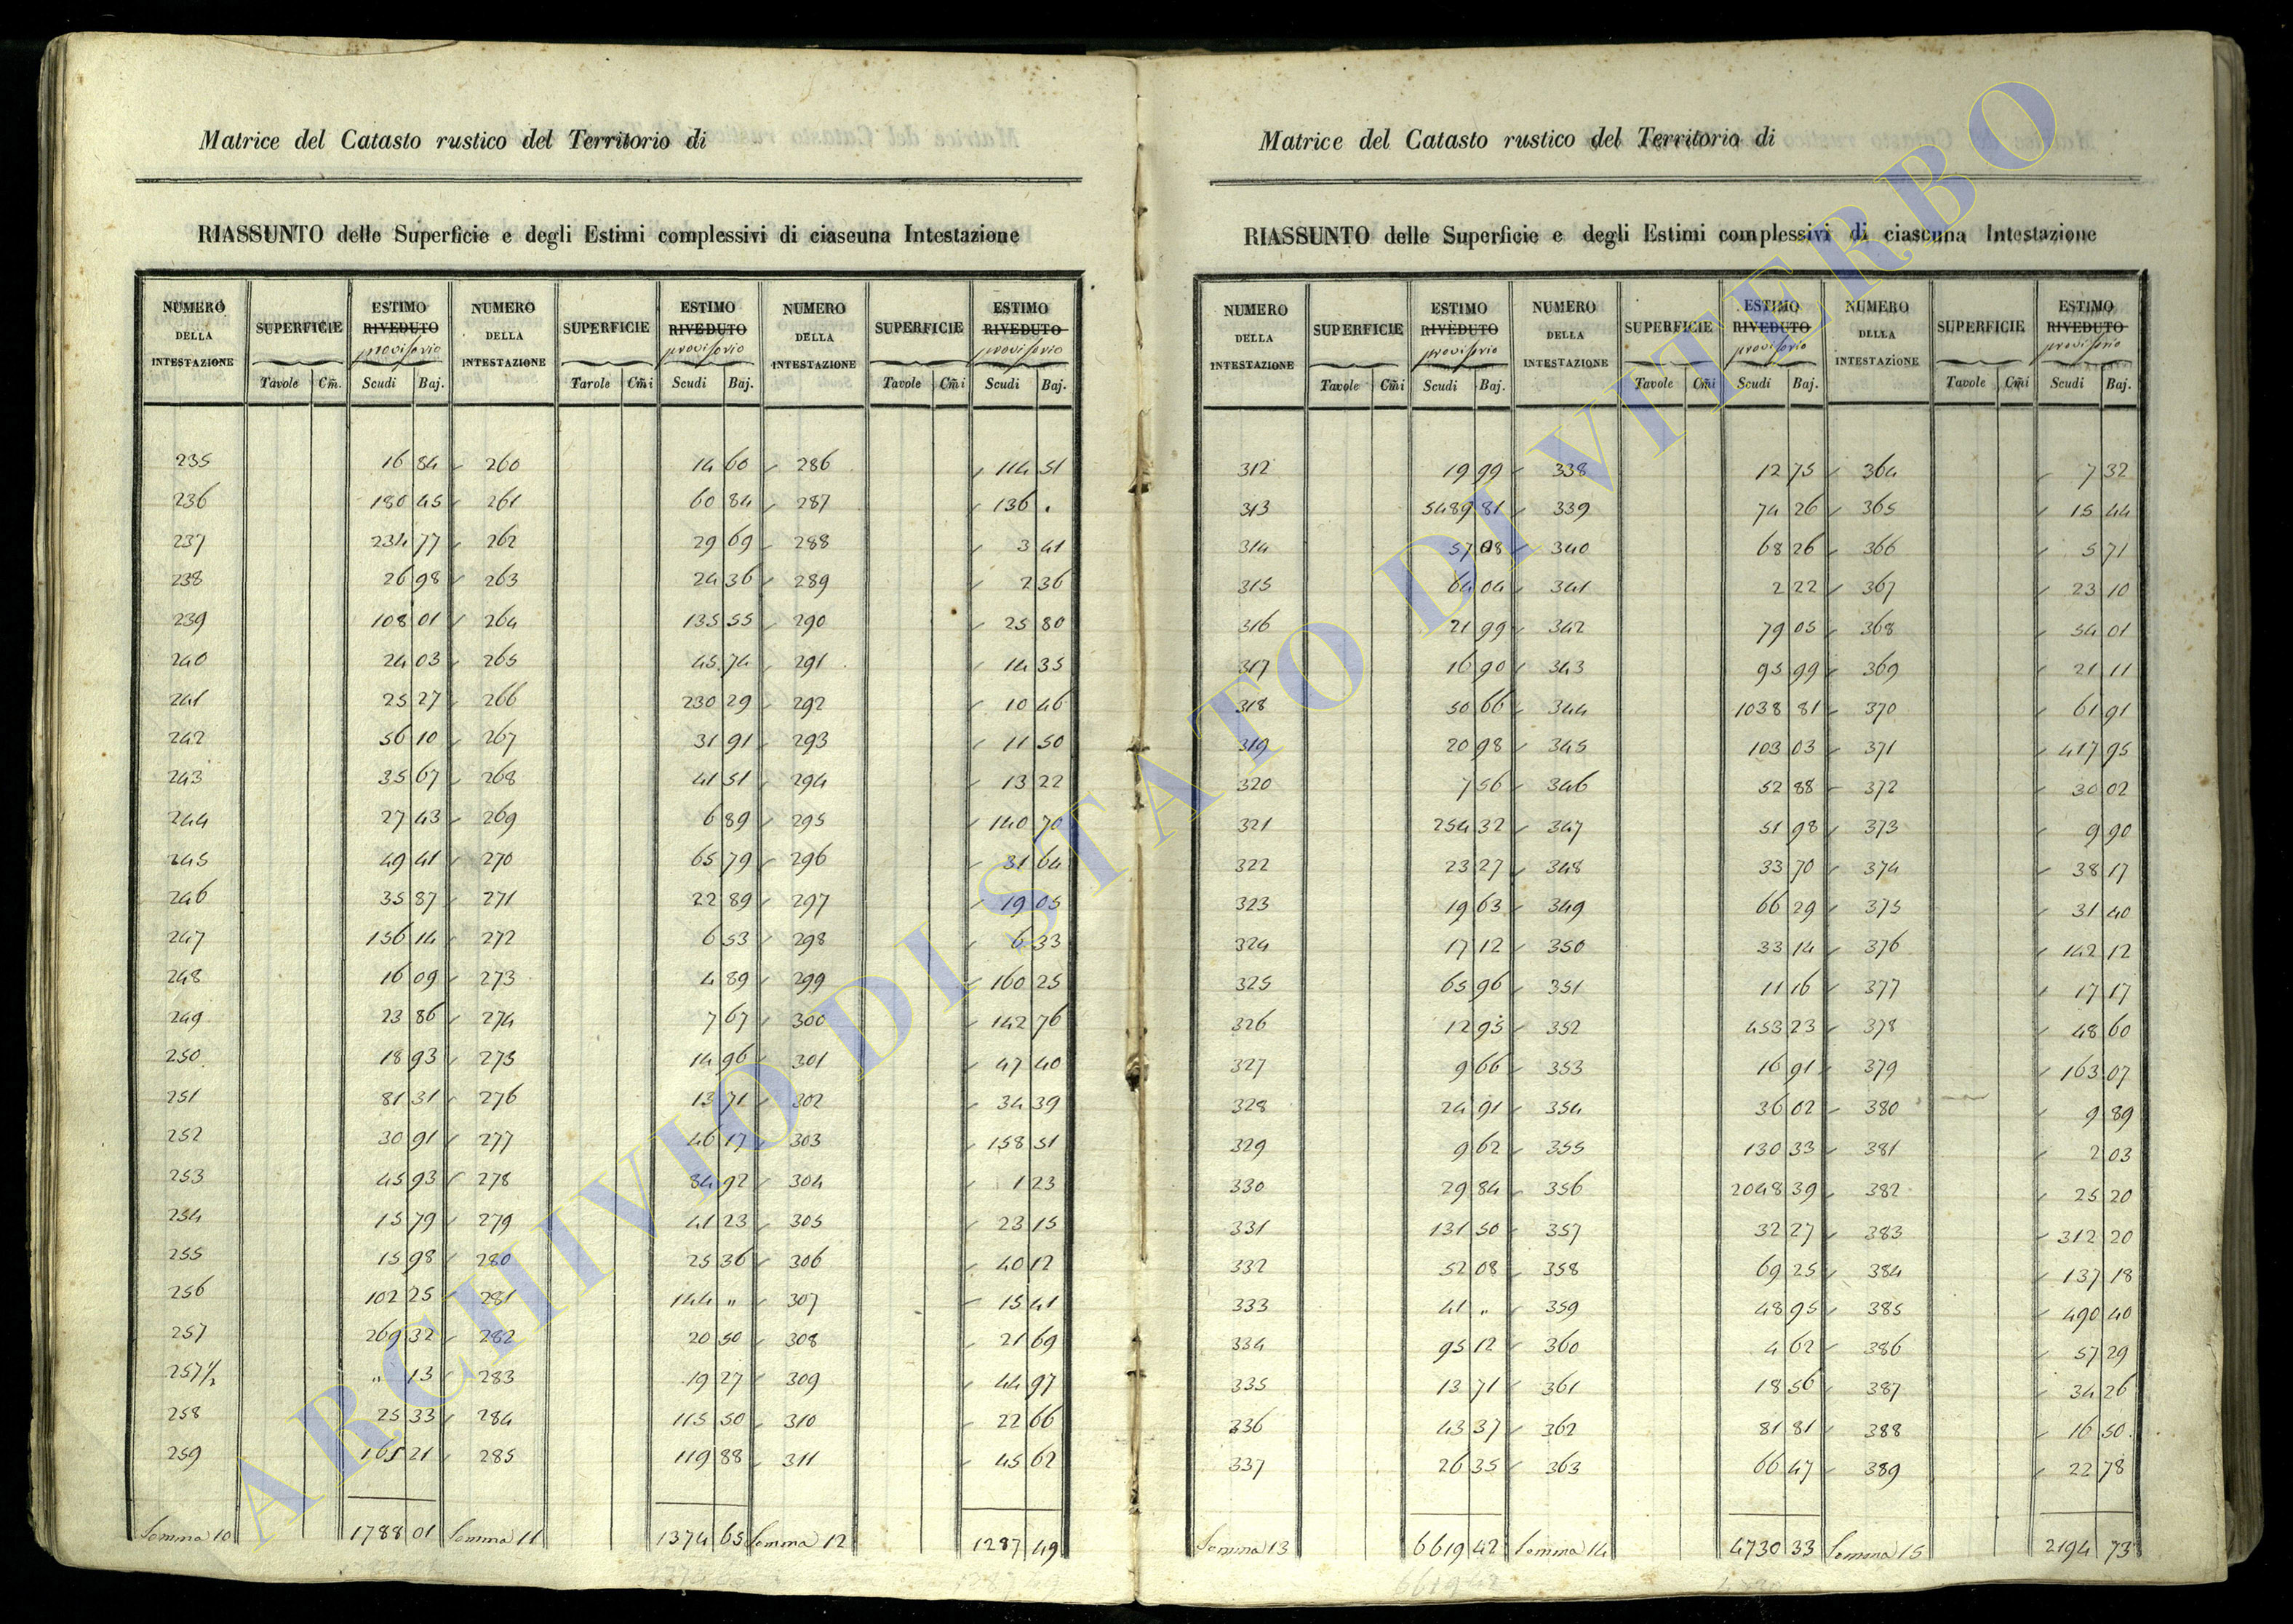 Matrice del Catasto rustico del Territorio di
RIASSUNTO delle Superficie e degli Estimi complessivi di ciascuna Intestazione
NUMERO DELLA INTESTAZIONE SUPERFICIE ESTIMO RIVEDUTO provisorio NUMERO DELLA INTESTAZIONE SUPERFICIE ESTIMO RIVEDUTO provisorio NUMERO DELLA INTESTAZIONE SUPERFICIE ESTIMO RIVEDUTO provisorio
Tavole Cm̄. Scudi Baj. Tavole Cm̄i Scudi Baj. Tavole Cm̄i Scudi Baj.
235 16 84 260 14 60 286 114 51
236 180 45 261 60 84 287 136 .
237 234 77 262 29 69 288 3 41
238 26 98 263 24 36 289 2 36
239 108 01 264 135 55 290 25 80
240 24 03 265 45 74 291 14 35
241 25 27 266 230 29 292 10 46
242 56 10 267 31 91 293 11 50
243 35 67 268 41 51 294 13 22
244 27 43 269 6 89 295 140 70
245 49 41 270 65 79 296 31 64
246 35 87 271 22 89 297 19 05
247 156 14 272 6 53 298 6 33
248 16 09 273 4 89 299 160 25
249 23 86 274 7 67 300 142 76
250 18 93 275 14 96 301 47 40
251 81 31 276 13 71 302 34 39
252 30 91 277 46 17 303 158 51
253 45 93 278 84 92 304 1 23
254 15 79 279 41 23 305 23 15
255 15 98 280 25 36 306 40 12
256 102 25 281 144 " 307 15 41
257 269 32 282 20 50 308 21 69
257 1/2 " 13 283 19 27 309 44 97
258 25 33 284 115 50 310 22 66
259 165 21 285 119 88 311 45 62
Somma 10 1788 01 Somma 11 1374 65 Somma 12 1287 49
Matrice del Catasto rustico del Territorio di
RIASSUNTO delle Superficie e degli Estimi complessivi di ciascuna Intestazione
NUMERO DELLA INTESTAZIONE SUPERFICIE ESTIMO RIVEDUTO provisorio NUMERO DELLA INTESTAZIONE SUPERFICIE ESTIMO RIVEDUTO provisorio NUMERO DELLA INTESTAZIONE SUPERFICIE ESTIMO RIVEDUTO provisorio
Tavole Cm̄i Scudi Baj. Tavole Cm̄i Scudi Baj. Tavole Cm̄i Scudi Baj.
312 19 99 338 12 75 364 7 32
313 5489 81 339 74 26 365 15 44
314 57 08 340 68 26 366 5 71
315 64 04 341 2 22 367 23 10
316 21 99 342 79 05 368 54 01
317 16 90 343 95 99 369 21 11
318 50 66 344 1038 81 370 61 91
319 20 98 345 103 03 371 417 95
320 7 56 346 52 88 372 30 02
321 254 32 347 51 98 373 9 90
322 23 27 348 33 70 374 38 17
323 19 63 349 66 29 375 31 40
324 17 12 350 33 14 376 142 12
325 65 96 351 11 16 377 17 17
326 12 95 352 453 23 378 48 60
327 9 66 353 16 91 379 163 07
328 24 91 354 36 02 380 9 89
329 9 62 355 130 33 381 2 03
330 29 84 356 2048 39 382 25 20
331 131 50 357 32 27 383 312 20
332 52 08 358 69 25 384 137 18
333 41 " 359 48 95 385 490 40
334 95 12 360 4 62 386 57 29
335 13 71 361 18 56 387 34 26
336 43 37 362 81 81 388 16 50
337 26 35 363 66 47 389 22 78
Somma 13 6619 42 Somma 14 4730 33 Somma 15 2194 73
ARCHIVIO DI STATO DI VITERBO